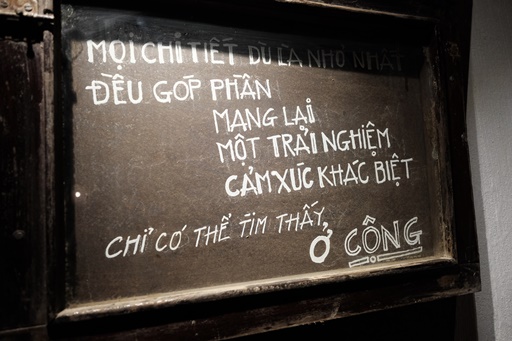 MỌI CHI TIẾT DÙ LÀ NHỎ NHẤT
ĐỀU GÓP PHẦN
MANG LẠI
MỘT TRẢI NGHIỆM
CẢM XÚC KHÁC BIỆT
CHỈ CÓ THỂ TÌM THẤY
Ở CỘNG